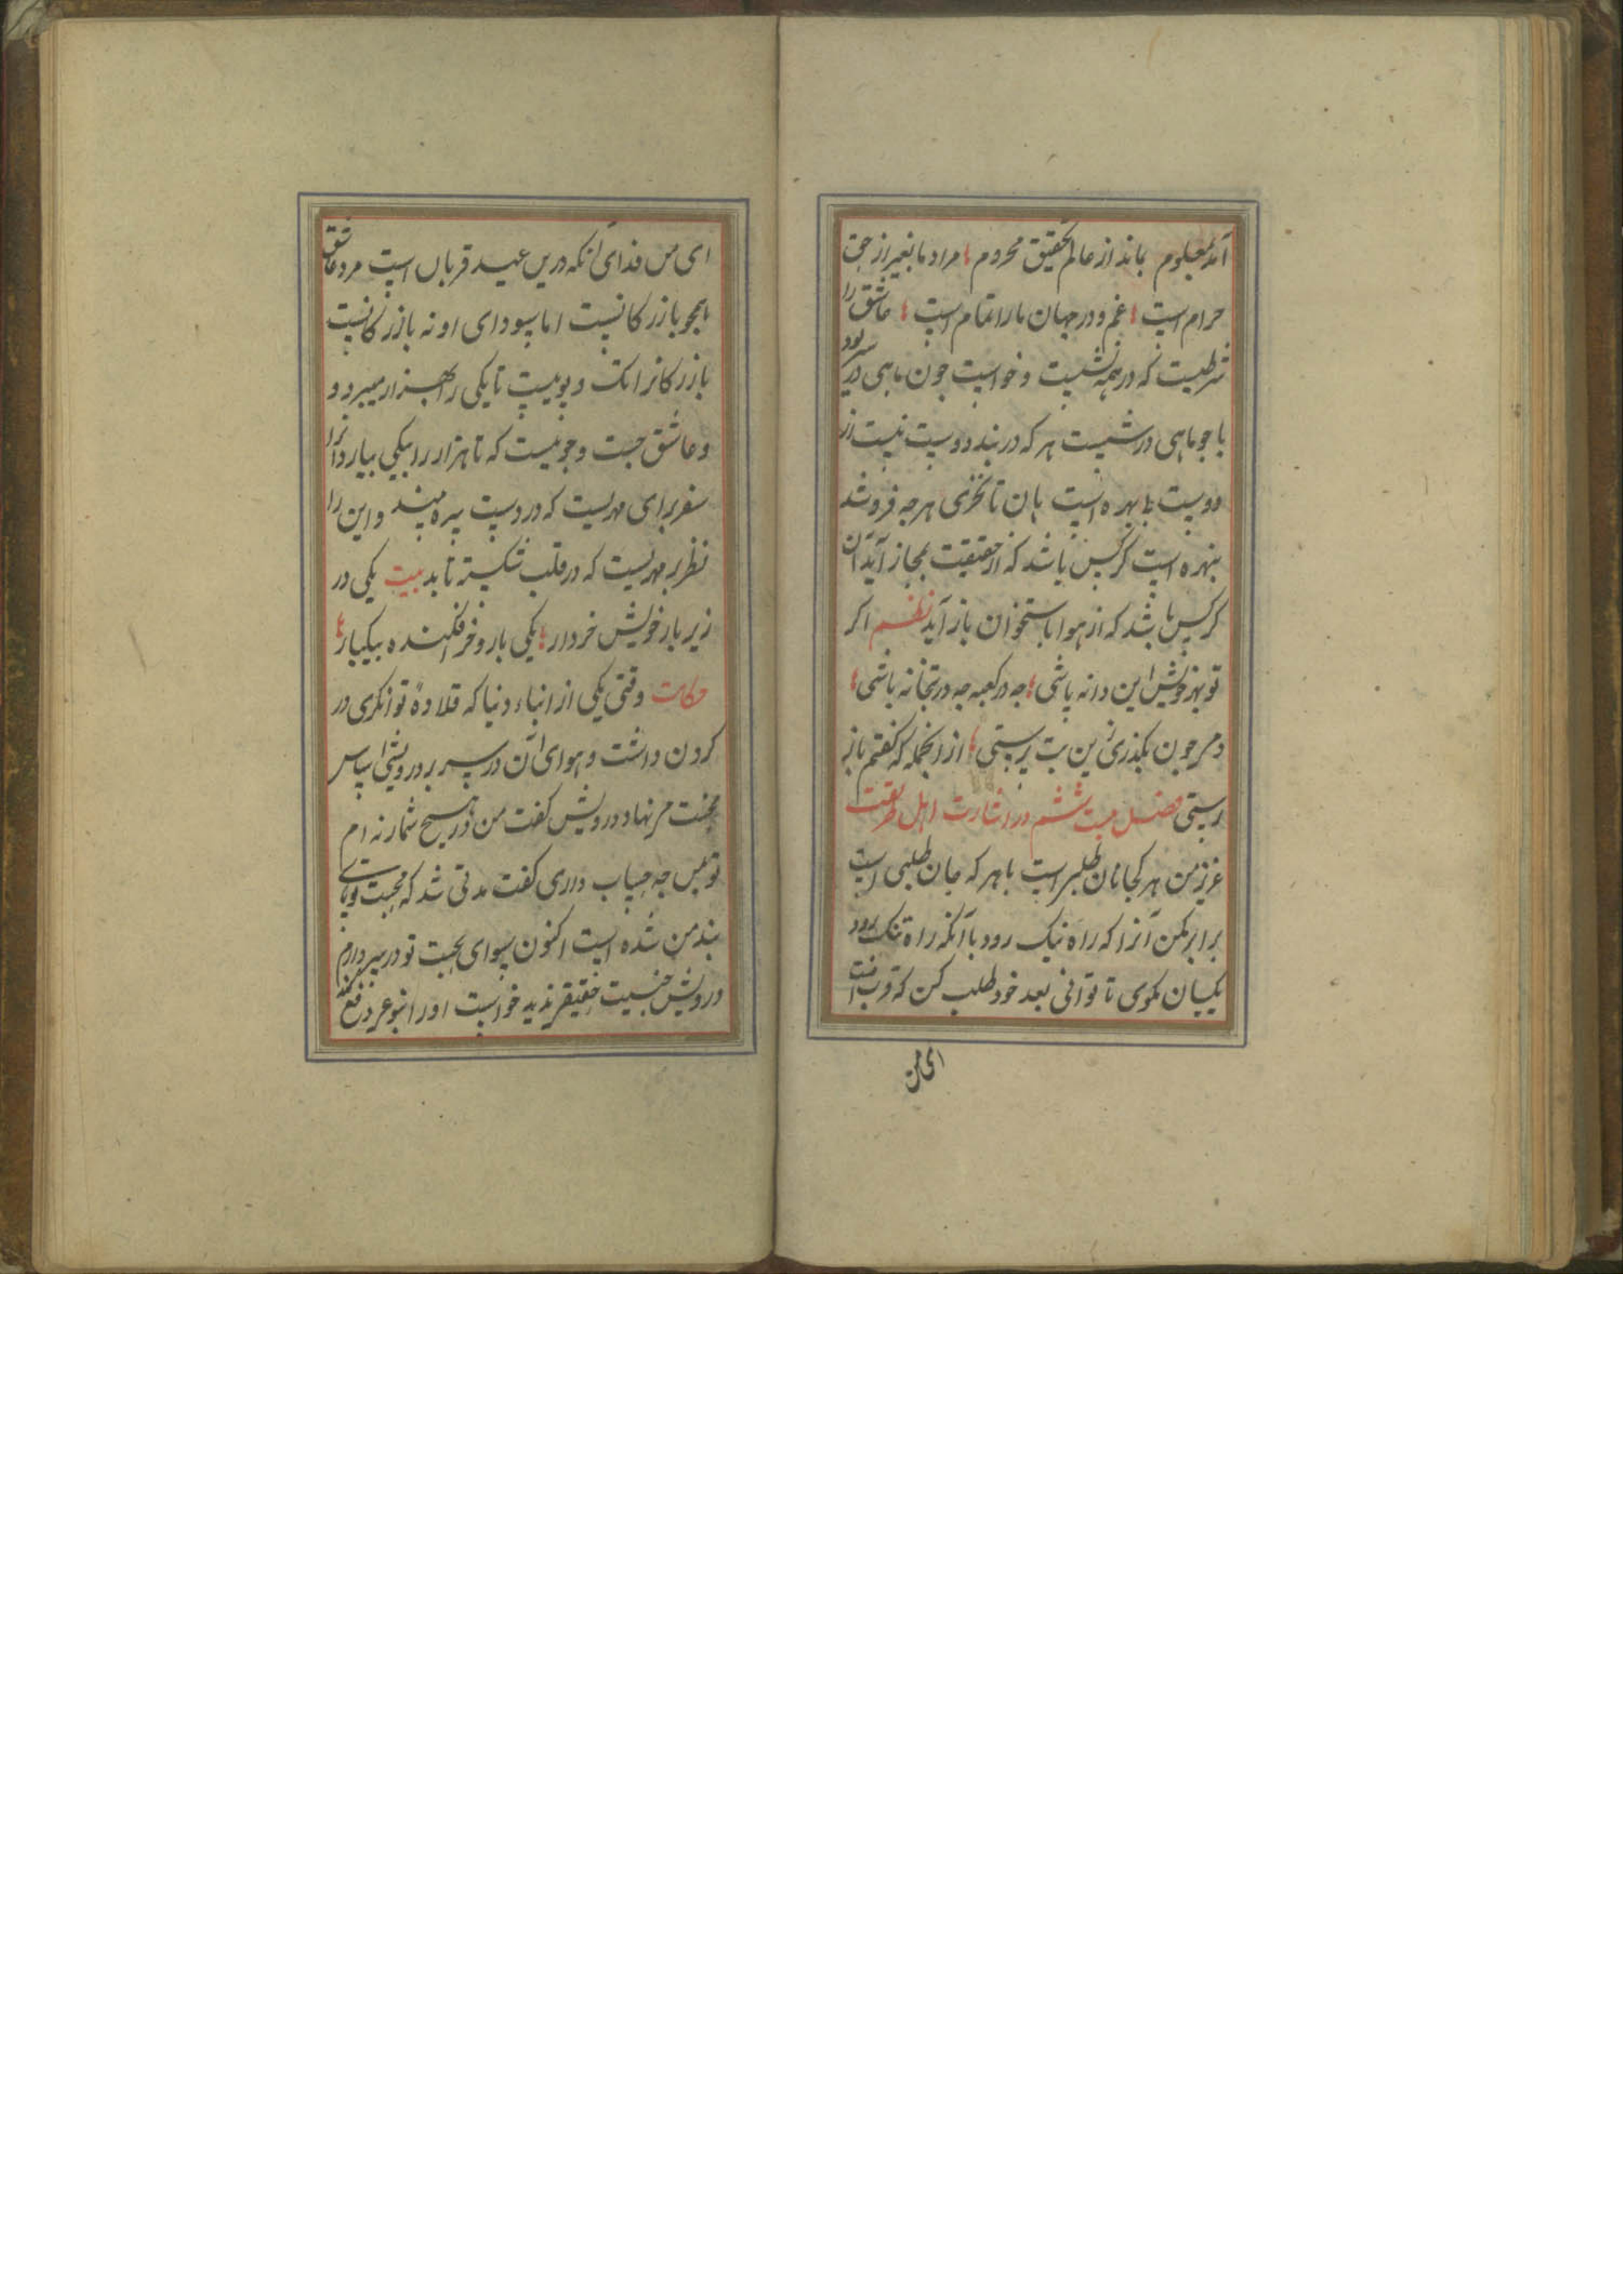 آمد معلوم بماند از عالم تحقیق محروم مراد ما بغیر از حق
حرام است غم و درد جهان ما را تمام است عاشق را
شرطیست که در همه نشست و خواست چون ماهی در
با چو ماهی در شست هر که در بند دوست نیست از
دوست بی بهره است هان تا نخری هرچه فروشند
بنهره است کرکس باشد که از حقیقت بمجاز آید آن
کرکس باشد که از هوا باستخوان باز آید نظم اکر
تو بهر خویش این دانه باشی چه در کعبه چه در بتخانه باشی
دمی چون بکذری زین بت پرستی از انجمله که کفتم باز
رستی فصل بیست ششم در اشارت اهل طریقت
عزیز من هر کجا نان طلبی است با هر که جان طلبی است
برابر مکن آنرا که راه نیک رود با آنکه راه تنک رود
یکسان مکوی تا توانی بعد خود طلب کن که قرب آفت
ای من
ای من فدای آنکه درین عید قربان است مرد عاشق
همچو بازرکانیست اما سودای او نه بازرکانیست
بازرکانرا تک و پوییست تا یکی را بهزار میبرد و
و عاشق جست و جوییست که تا هزار را بیکی بیارد آنرا
سفر برای مهریست که در دست سره میبند و این را
نظر بر مهریست که در قلب شکسته تابد بیت یکی در
زیر بار خویش خردار یکی بار و خر افکنده بیکبار
حکایت وقتی یکی از ابناء دنیا که قلادهٔ توانکری در
کردن داشت و هوای آن در سر بر درویشی اساس
محبت می نهاد درویش کفت من در هیچ شمار نه ام
تو بمن چه حساب داری کفت مدتی شد که محبت تو پای
بند من شده است اکنون سودای صحبت تو در سر دارم
درویش جنسیت حقیقی ندید خواست او را بنوعی دفع کند